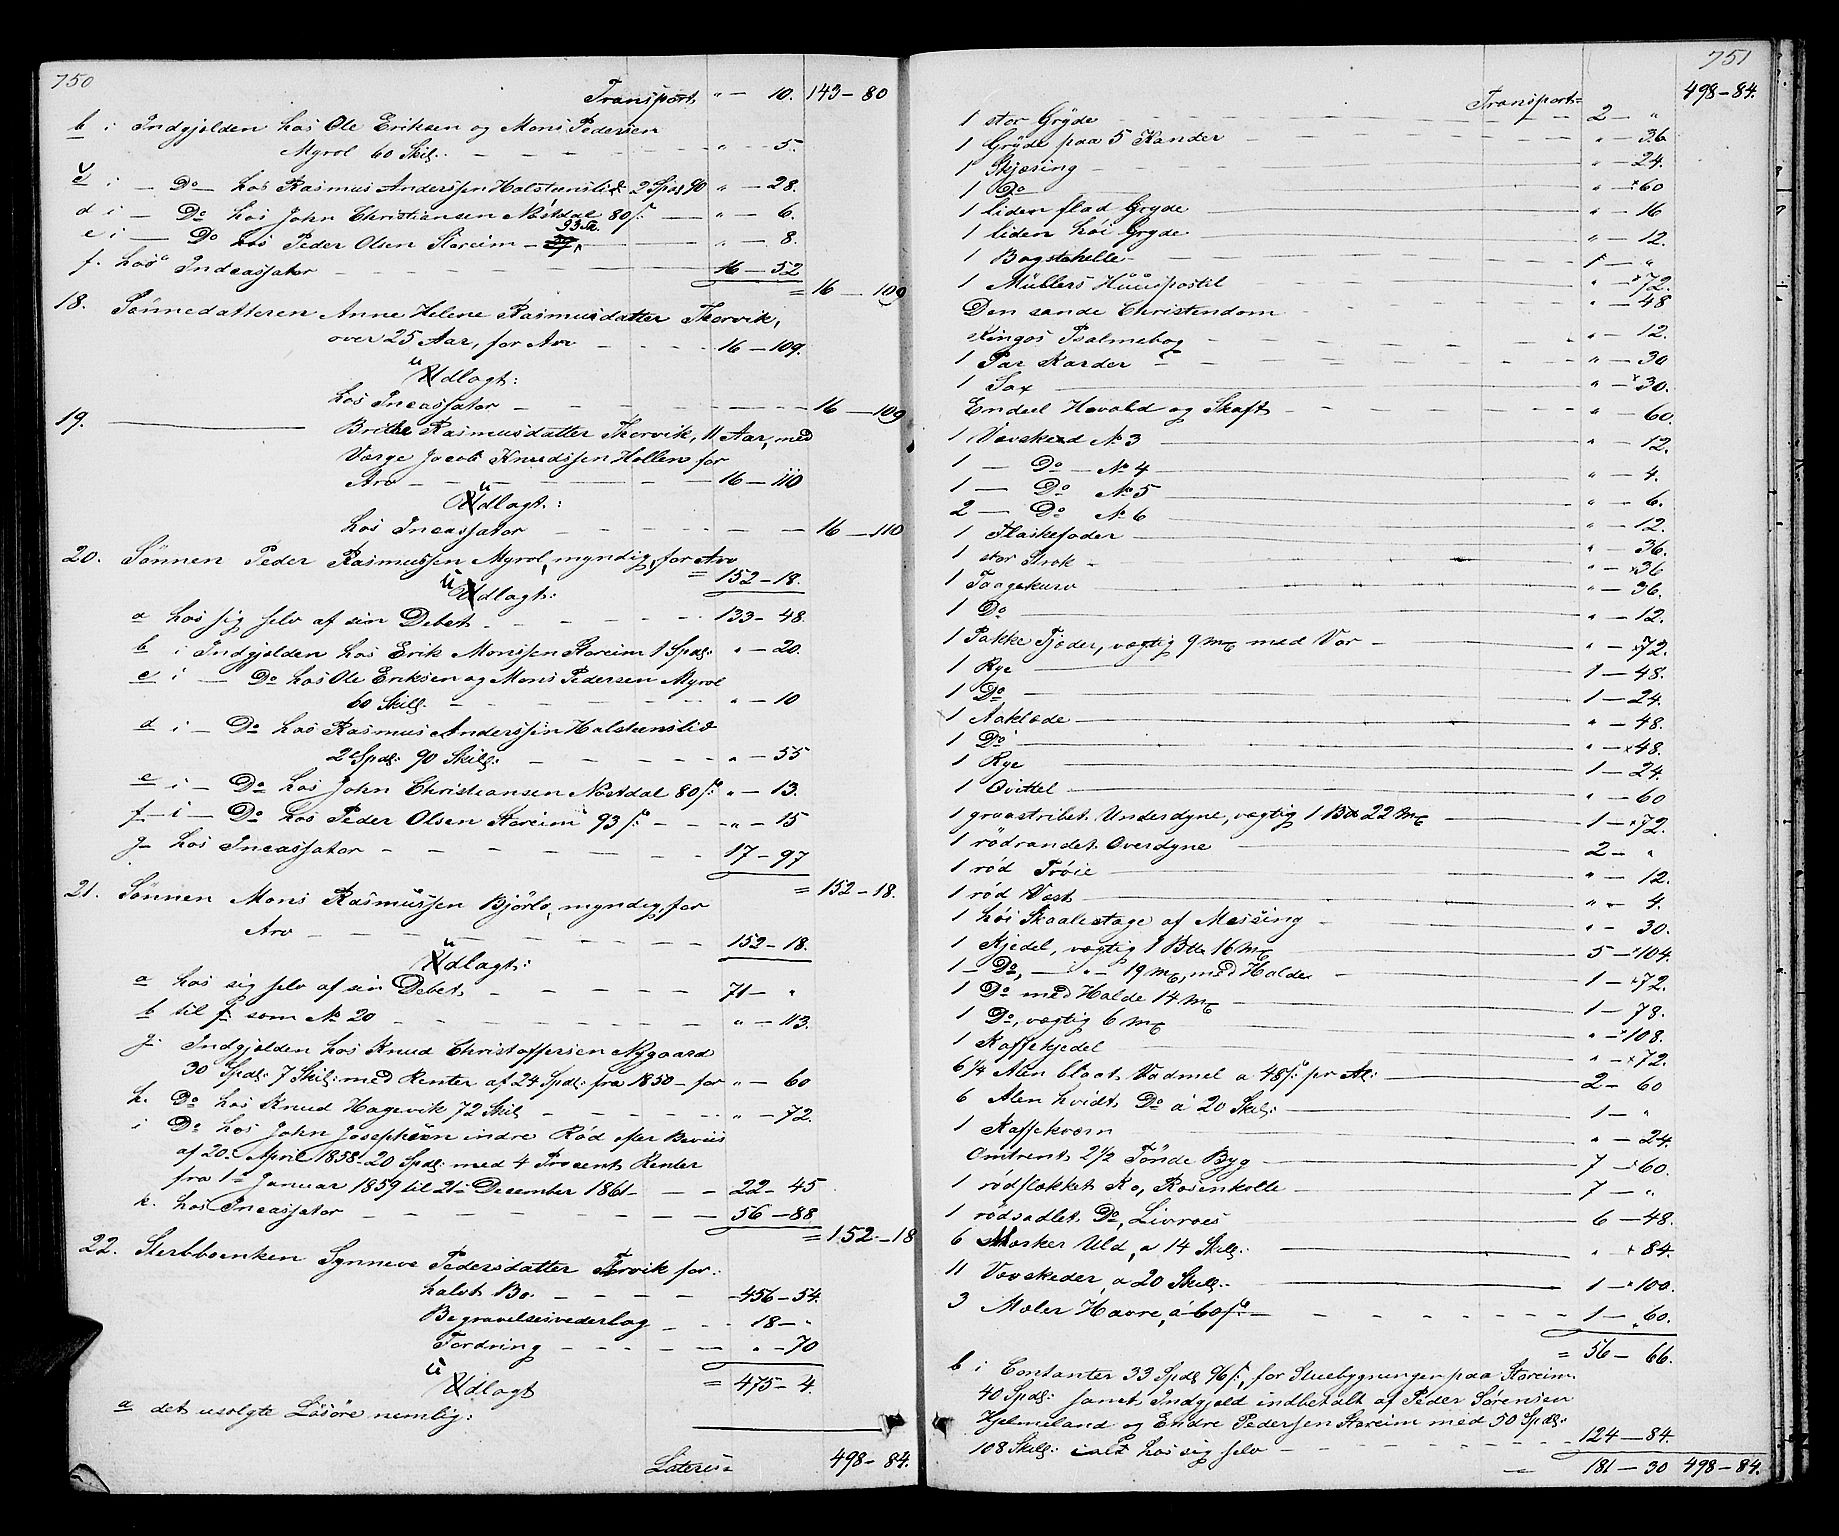 750
Transport " - 10. 143 - 80
b i Indgjælden hos Ole Eriksen og Mons Pedersen
Myrol 60 Skil: " - 5.
c i - Do - hos Rasmus Anderssen Halsteenslid 2 Spd 90 " - 28.
d i - Do hos John Christiansen Nøstdal 80 s: " - 6.
e i - Do hos Peder Olsen Storeim - 93 Sk. " - 8.
f. hos Incassator 16 - 52
= 16 - 109
18. Sønnedatteren Anne Helene Rasmusdatter Thorvik,
over 25 Aar, for Arv 16 - 109.
Udlagt:
hos Incassator 16 - 109
19. Brithe Rasmusdatter Thorvik, 11 Aar, med
Værge Jacob Knudssen Hollen for
Arv 16 - 110
Udlagt:
hos Incassator 16 - 110
20. Sønnen Peder Rasmussen Myrol, myndig, for Arv
= 152 - 18.
Udlagt:
a hos sig selv af sin Debet 133 - 48.
b i Indgjælden hos Erik Monssen Storeim 1 Spd: " - 20.
c i - Do hos Ole Eriksen og Mons Pedersen Myrol
60 Skil: " - 10
d i - Do hos Rasmus Anderssen Halsteenslid
2 Spd: 90 Skil: " - 55
e i - Do hos John Christiansen Nøstdal 80 s: " - 13.
f i - Do hos Peder Olsen Storeim 93 s: " - 15
g hos Incassator 17 - 97
= 152 - 18.
21. Sønnen Mons Rasmussen Bjørlo, myndig, for
Arv 152 - 18.
Udlagt:
a hos sig selv af sin Debet 71 - "
b til f: som No 20 " - 113.
g. Indgjælden hos Knud Christoffersen Nygaard
30 Spd: 7 Skil: med Renter af 24 Spd: fra 1850 - for " - 60
h. Do hos Knud Hagevik 72 Skil " - 72.
i Do hos John Josephsen indre Rød efter Beviis
af 20. April 1858 - 20 Spd: med 4 Procent Renter
fra 1ste Januar 1859 til 21de December 1861 - 22 - 45
k. hos Incassator 56 - 88
= 152 - 18
22. Sterbboenken Synneve Pedersdatter Torvik for:
halvt Bo. 456 - 54.
Begravelsesvederlag 18 - "
Fordring " - 70
= 475 - 4.
Udlagt
a det usolgte Løsøre nemlig:
Lateris = 498 - 84.
751
Transport = 498 - 84.
1 stor Gryde 2 - "
1 Gryde paa 5 Kander " - 36.
1 Skjæsing " - 24.
1 Do " - 60
1 liden flad Gryde " - 16
1 liden høi Gryde " - 12.
1 Bagstehelle 1 - "
1 Müllers Huuspostil " - 72.
Den sande Christendom " - 48
Kingos Psalmebog " - 12.
1 Par Karder " - 30
1 Sax " - 30.
Endeel Hovold og Skaft " - 60.
1 Vævskeed No 3 " - 12.
1 - Do - No 4 " - 4.
1 - Do No 5 " - 6.
2 - Do No 6 " - 12.
1 Flaskefoder " - 36.
1 stor Strok " - 36
1 Taagekurv " - 36.
1 Do " - 12.
1 Pakke Fjæder, vægtig 9 mk med Vor " - 72.
1 Rye 1 - 48.
1 Do 1 - 24.
1 Aaklæde " - 48.
1 Do " - 48.
1 Rye 1 - 24.
1 Qvittel " - 60
1 graastribet Underdyne, vægtig 1 B 22 mk 1 - 72.
1 rødrandet Overdyne 2 - "
1 rød Trøie " - 12.
1 rød Vest " - 4.
1 høi Skaalestage af Messing " - 30.
1 Kjedel, vægtig 1 B 16 mk 5 - 104.
1 - Do, - " - 19 mk, med Halde 1 - 72.
1 Do med Halde 14 mk 1 - 78.
1 Do, vægtig 6 mk " - 108.
1 Kaffekjedel " - 72.
6 1/4 Alen blaat Vadmel a 48 s: pr Al: 2 - 60
6 Alen hvidt Do à 20 Skil: 1 - "
1 Kaffekværn " - 24.
Omtrent 2 1/2 Tønde Byg 7 - 60.
1 rødflekket Ko, Rosenkolle 7 - "
1 rødsadlet Do, Livroes 6 - 48.
6 Marker Uld, a 14 Skil: " - 84.
11 Vævskeder, a 20 Skil: 1 - 100.
3 Mæler Havre, a 60 s: 1 - 60.
= 56 - 66.
b i Contanter 33 Spd 96 s:, for Stuebygningen paa Storeim
40 Spd: samt Indgjeld indbetalt af Peder Sørensen
Hjelmeland og Endre Pedersen Storeim med 50 Spd:
108 Skil: ialt hos sig selv 124 - 84.
181 - 30 498 - 84.